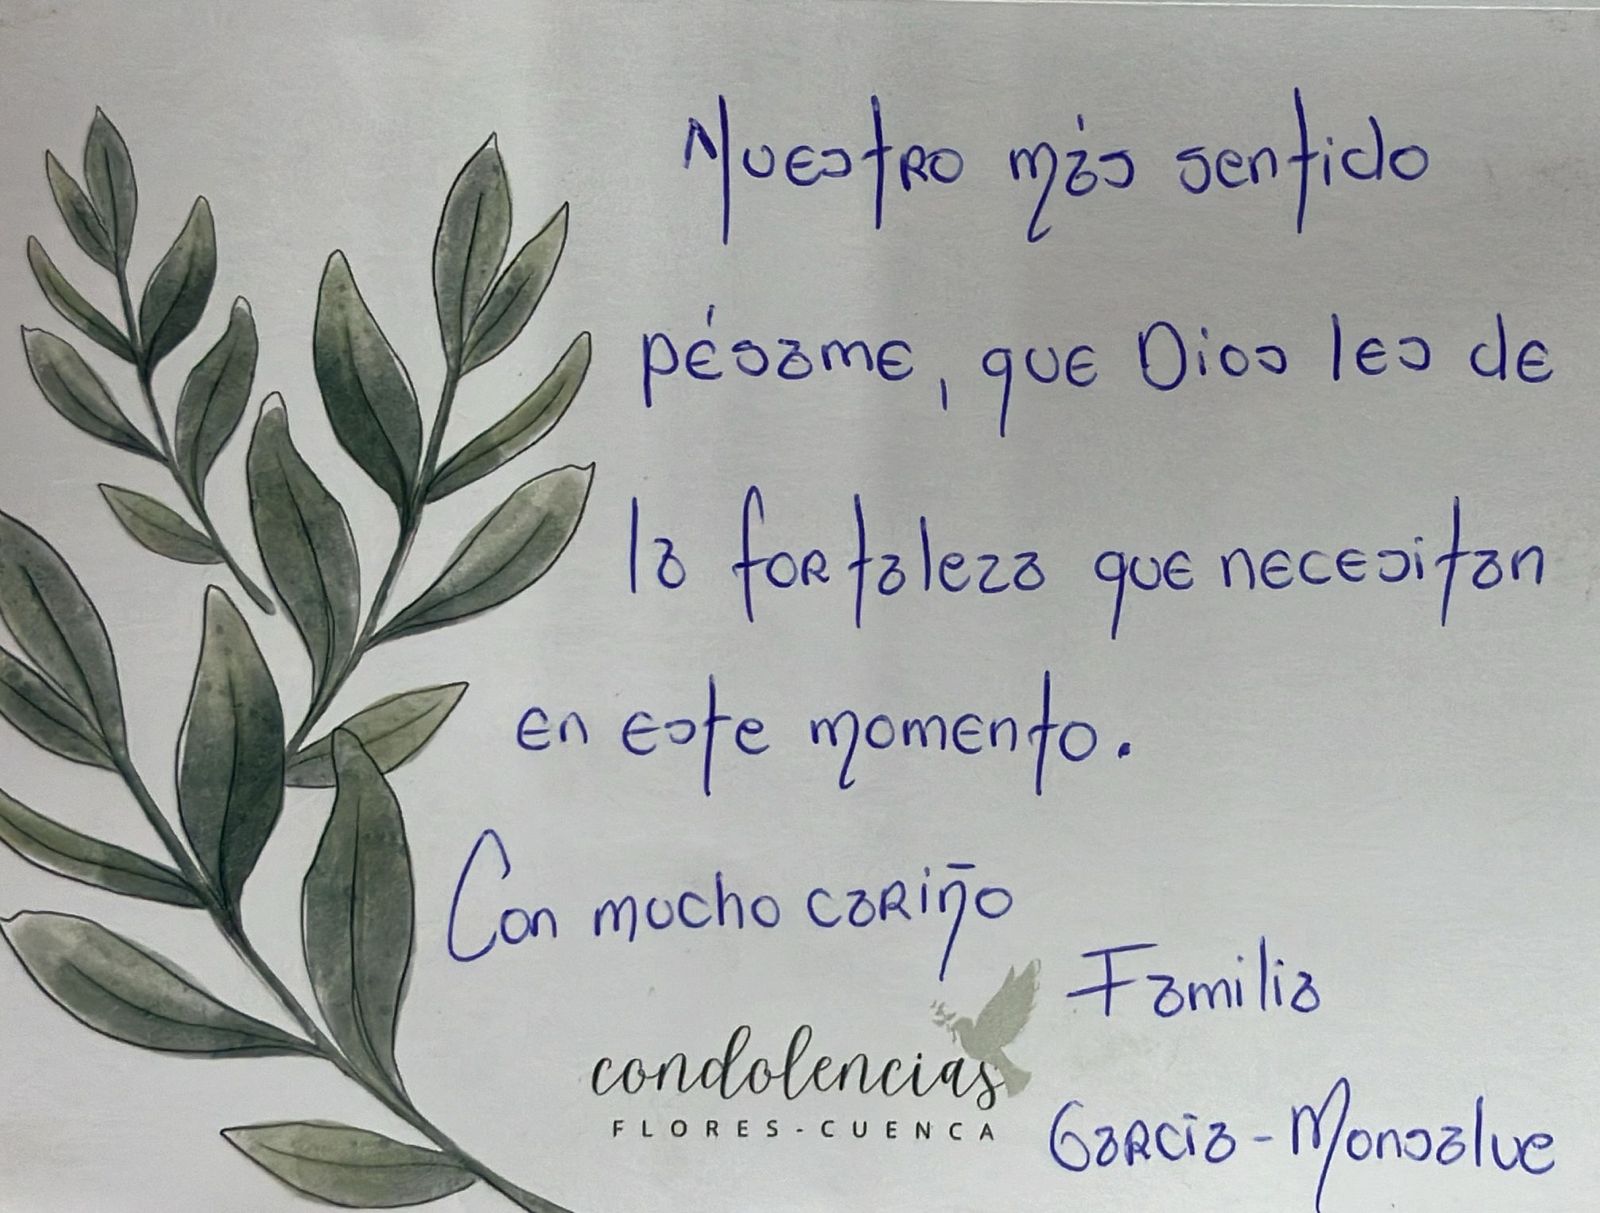 Nuestro más sentido
pésame, que Dios les de
la fortaleza que necesitan
en este momento.
Con mucho cariño
Familia
Garcia - Monsalve
condolencias
FLORES-CUENCA